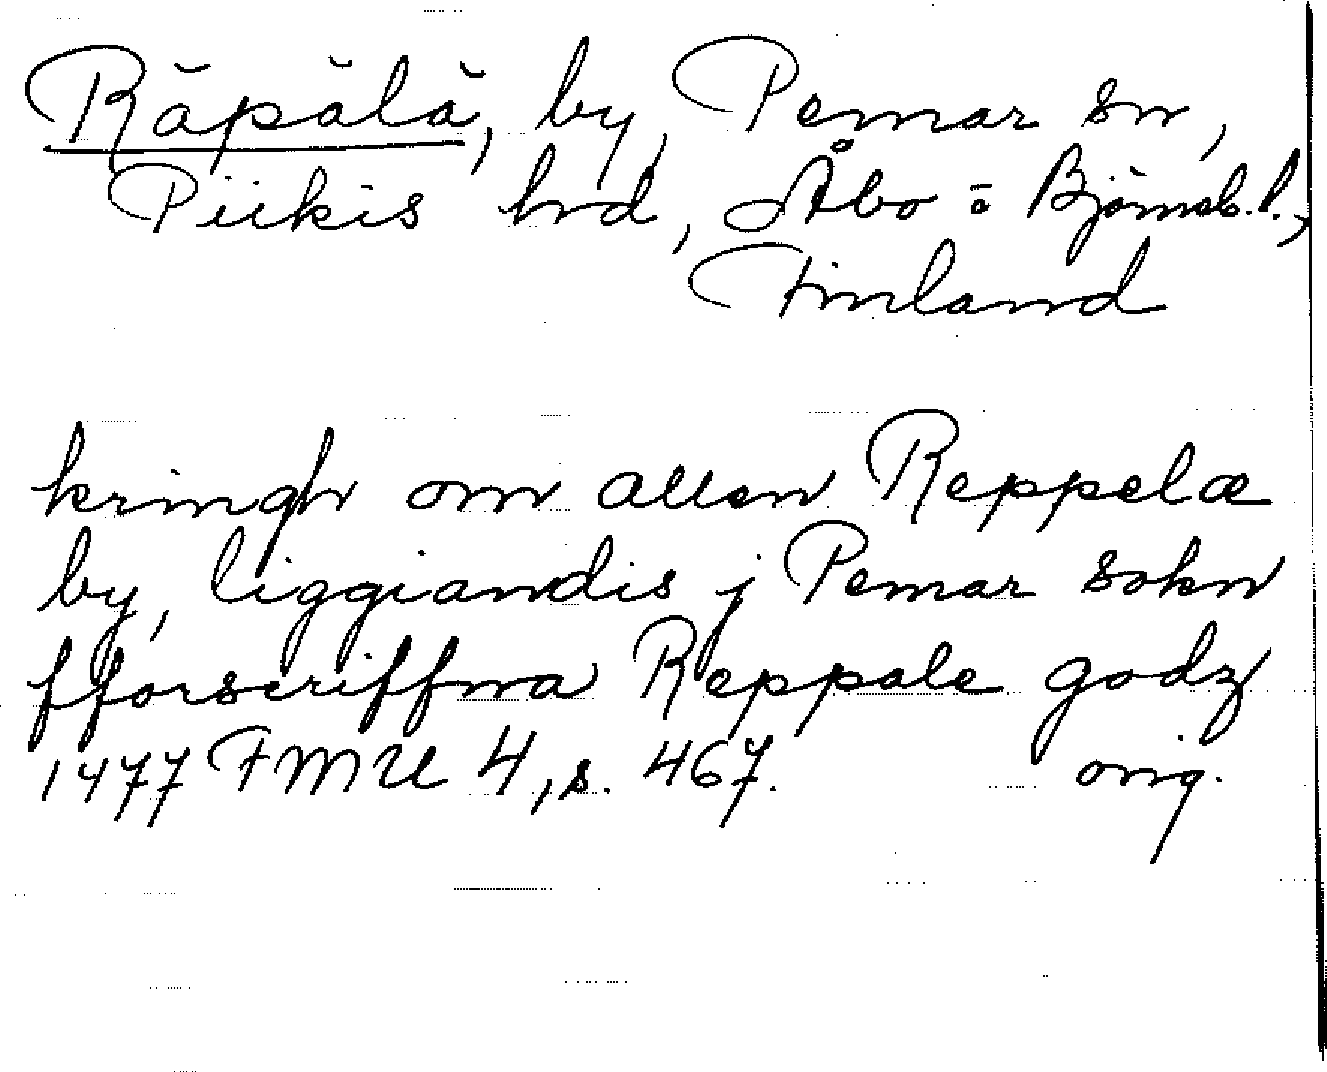 Räpälä, by, Pemar sn,
Piikis hrd, Åbo o Björneb. l.,
Finland
kringh om allen Reppelæ
by, liggiandis j Pemar sokn
fforscriffna Reppale godz
1477 FMU 4, s. 467. orig.